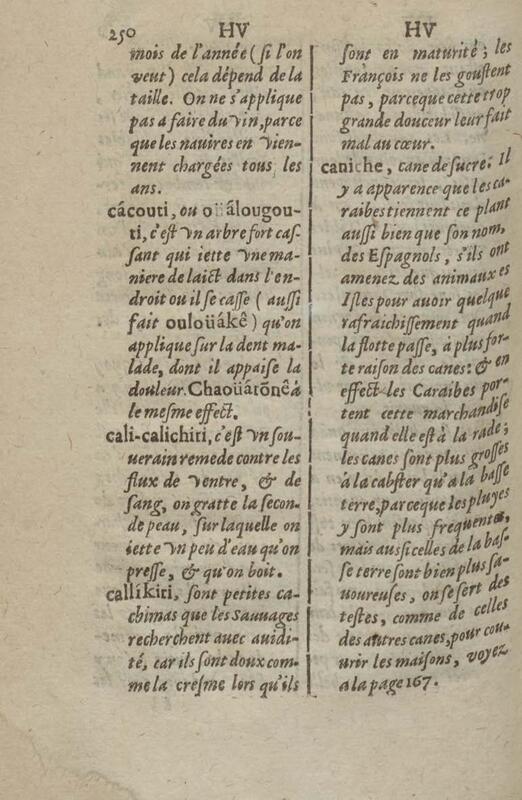 250 HV
mois de l'année (si l'on
veut) cela dépend de la
taille. On ne s'applique
pas a faire du vin, parce
que les nauires en vien-
nent chargées tous les
ans.
cácouti, ou oüálougou-
ti, c'eſt vn arbre fort caſ-
ſant qui iette vne ma-
niere de laict dans l'en-
droit ou il ſe caſſe (auſſi
fait ouloüákê) qu'on
applique ſur la dent ma-
lade, dont il appaiſe la
douleur. Chaoüárõnê à
le meſme effect.
cali-calichiri, c'eſt vn ſou-
uerain remede contre les
flux de ventre, & de
ſang, on gratte la ſecon-
de peau, ſur laquelle on
iette vn peu d'eau qu'on
preſſe, & qu'on boit.
callíkiri, ſont petites ca-
chimas que les Sauuages
recherchent auec auidi-
té, car ils ſont doux com-
me la creſme lors qu'ils
HV
ſont en maturité; les
François ne les gouſtent
pas, parceque cette trop
grande douceur leur fait
mal au cœur.
caniche, cane de ſucre: Il
y a apparence que les ca-
raibes tiennent ce plant
auſſi bien que ſon nom,
des Eſpagnols, s'ils ont
amenez des animaux es
Iſles pour auoir quelque
rafraichiſſement quand
la flotte paſſe, à plus for-
te raiſon des canes: & en
effect les Caraibes por-
tent cette marchandiſe
quand elle eſt à la rade;
les canes ſont plus groſſes
à la cabſter qu'a la baſſe
terre, parceque les pluyes
y ſont plus frequentes,
mais auſſi celles de la baſ-
ſe terre ſont bien plus ſa-
uoureuſes, on ſe ſert des
teſtes, comme de celles
des autres canes, pour cou-
urir les maiſons, voyez
a la page 167.